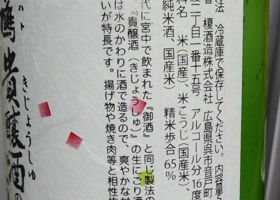 法 冷蔵庫で保存してください。内容量
者 榎酒造株式会社 広島県呉市音戸町
二丁目一番十五号 アルコール分16度
純米酒(国産)、米(国産)、米こうじ(国産米)
精米歩合65%
代に宮中で飲まれた『御酒』と同じ製法の
『貴醸酒（きじょうしゅ）』の生にごり酒
は水のかわりに酒で造るので、爽やかな甘
いが特長です。揚げ物や焼き肉等と相性抜
きじょうしゅ
貴醸酒の